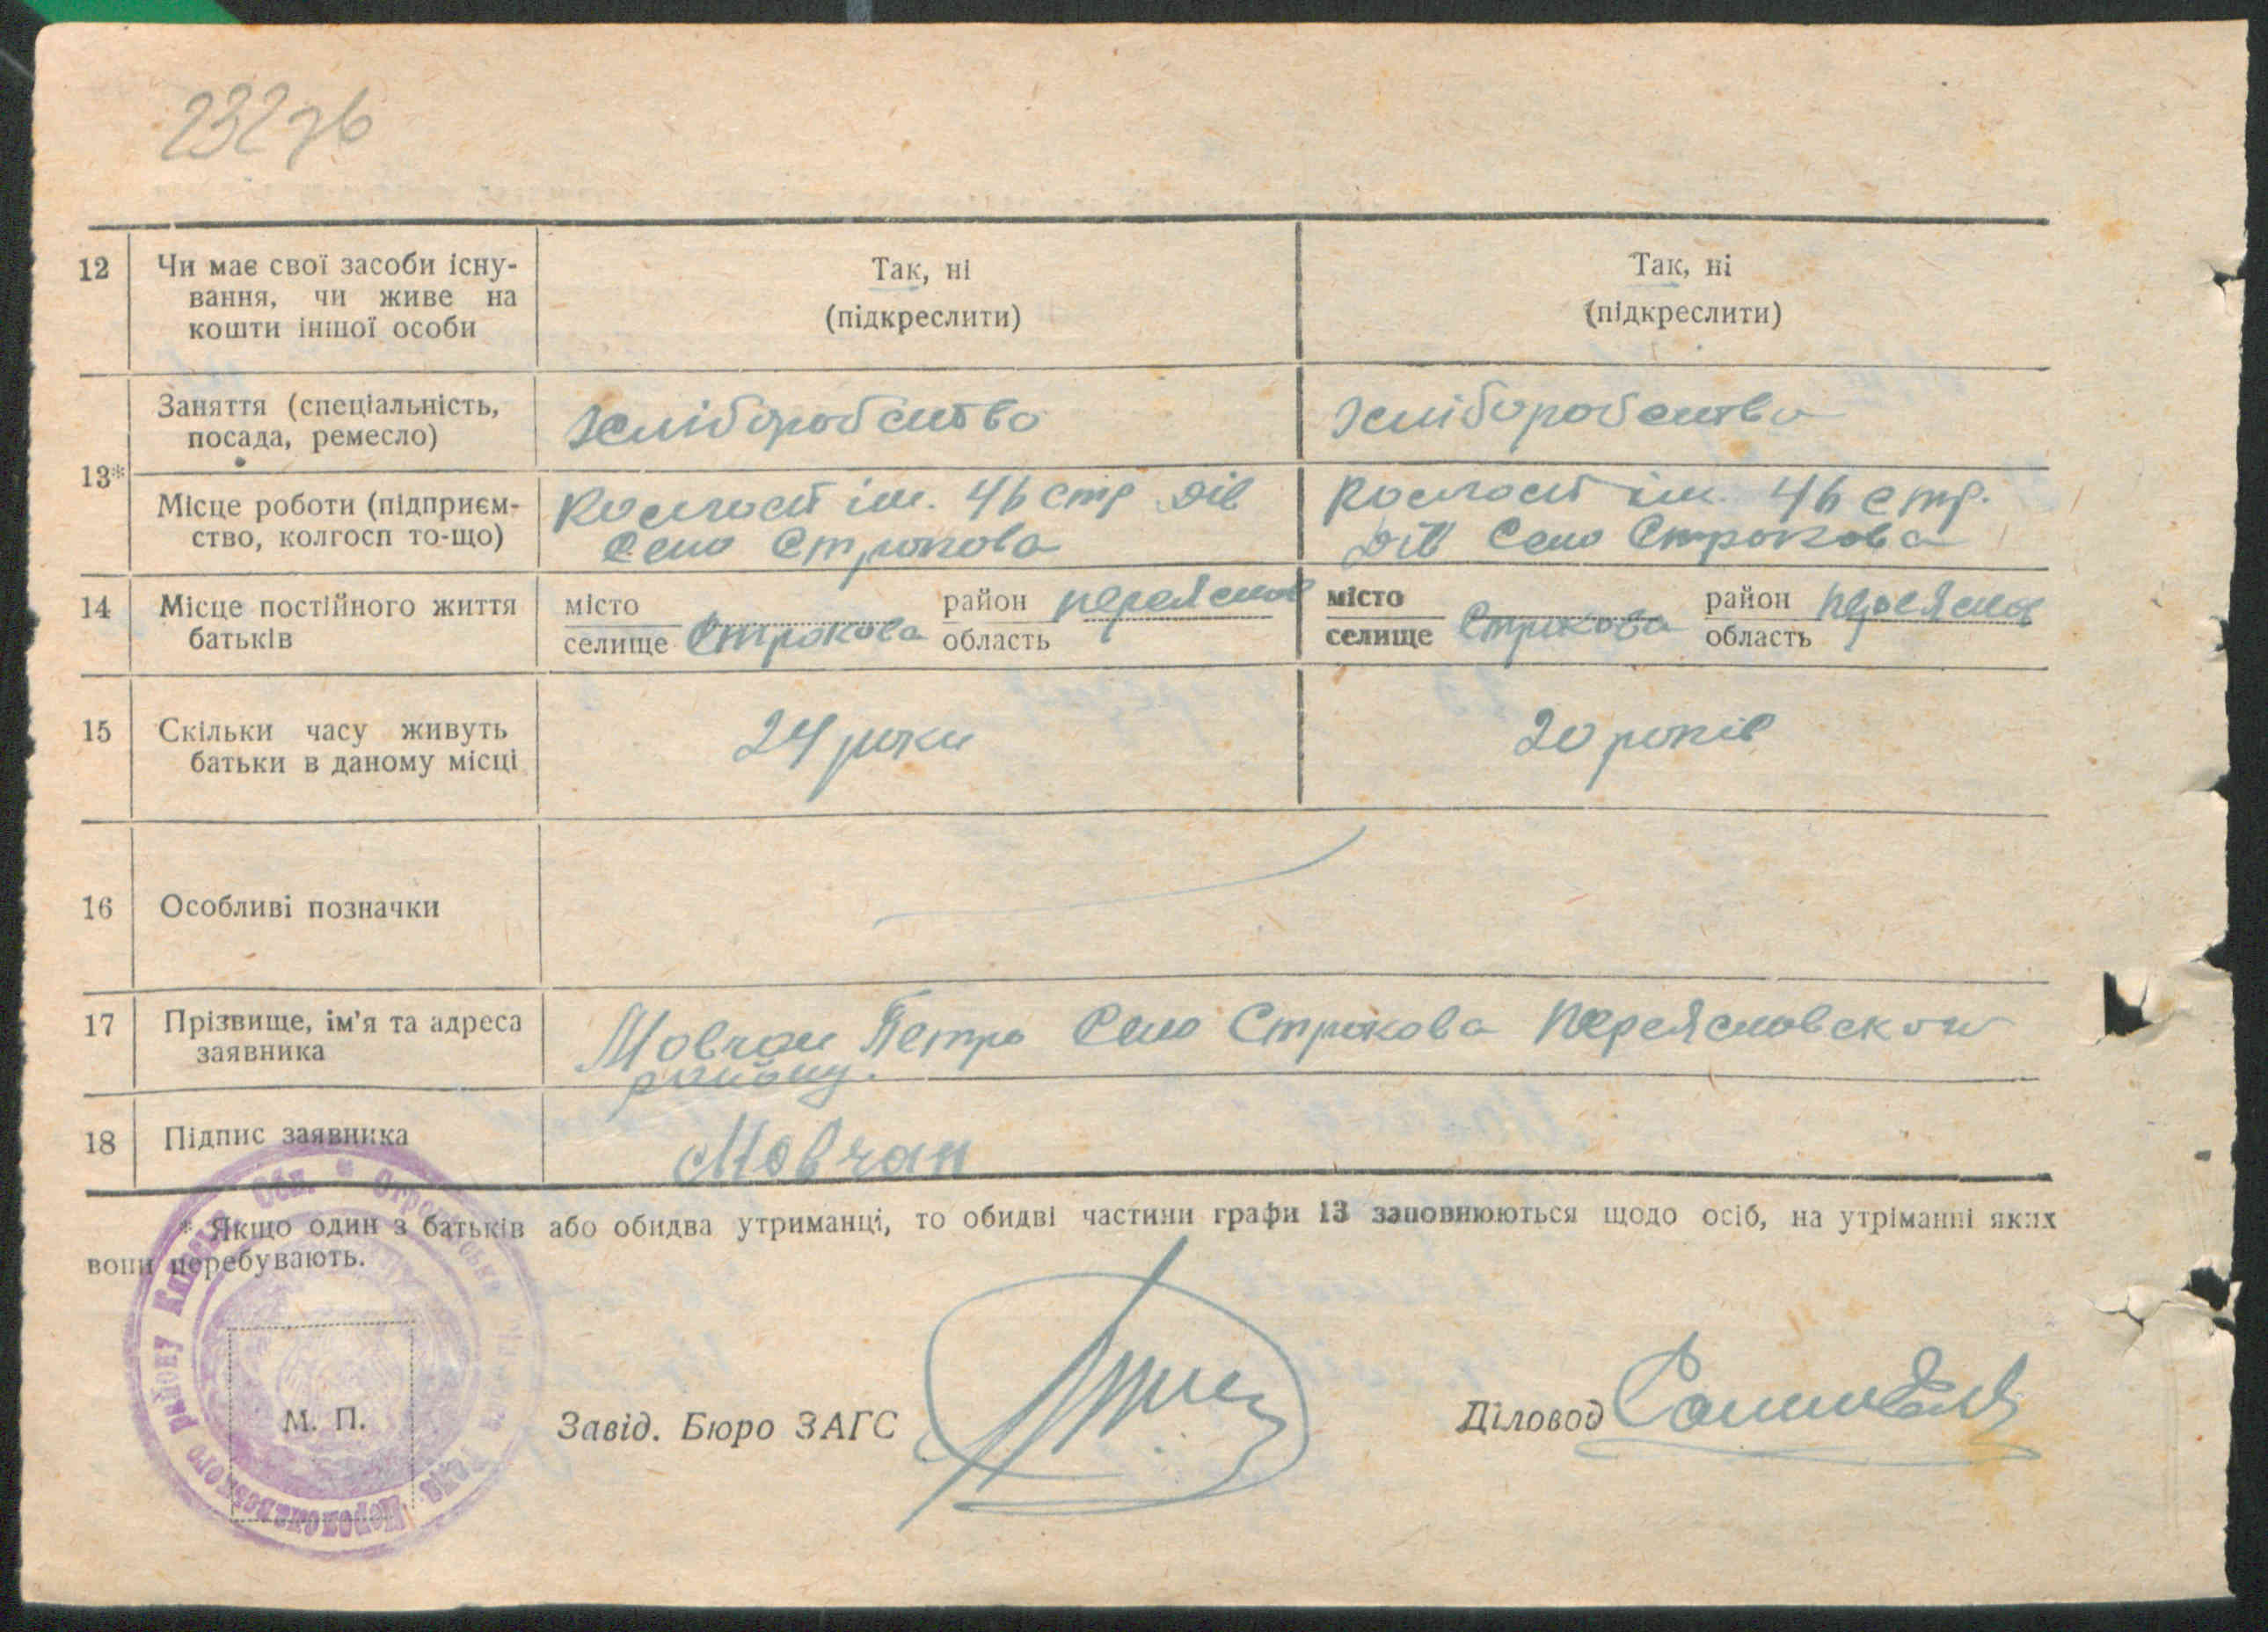 232 зв
12 Чи має свої засоби існу- Так, ні Так, ні
вання, чи живе на (підкреслити) (підкреслити)
кошти іншої особи
Заняття (спеціальність, хліборобство хліборобство
посада, ремесло)
13*
Місце роботи (підприєм- Колгосп ім. 46 стр див Колгосп ім. 46 стр.
ство, колгосп то-що) село Строкова див Село Строкова
14 Місце постійного життя місто район переяслов місто район переяслов
батьків селище Строкова область селище Строкова область
15 Скільки часу живуть 24 роки 20 років
батьки в даному місці
16 Особливі позначки
17 Прізвище, ім'я та адреса Мовчан Петро Село Строкова Переясловского
заявника району.
18 Підпис заявника Мовчан
* Якщо один з батьків або обидва утриманці, то обидві частини графи 13 заповнюються щодо осіб, на утріманні яких
вони перебувають.
М. П. Завід. Бюро ЗАГС Діловод
району Київськ Обл. *